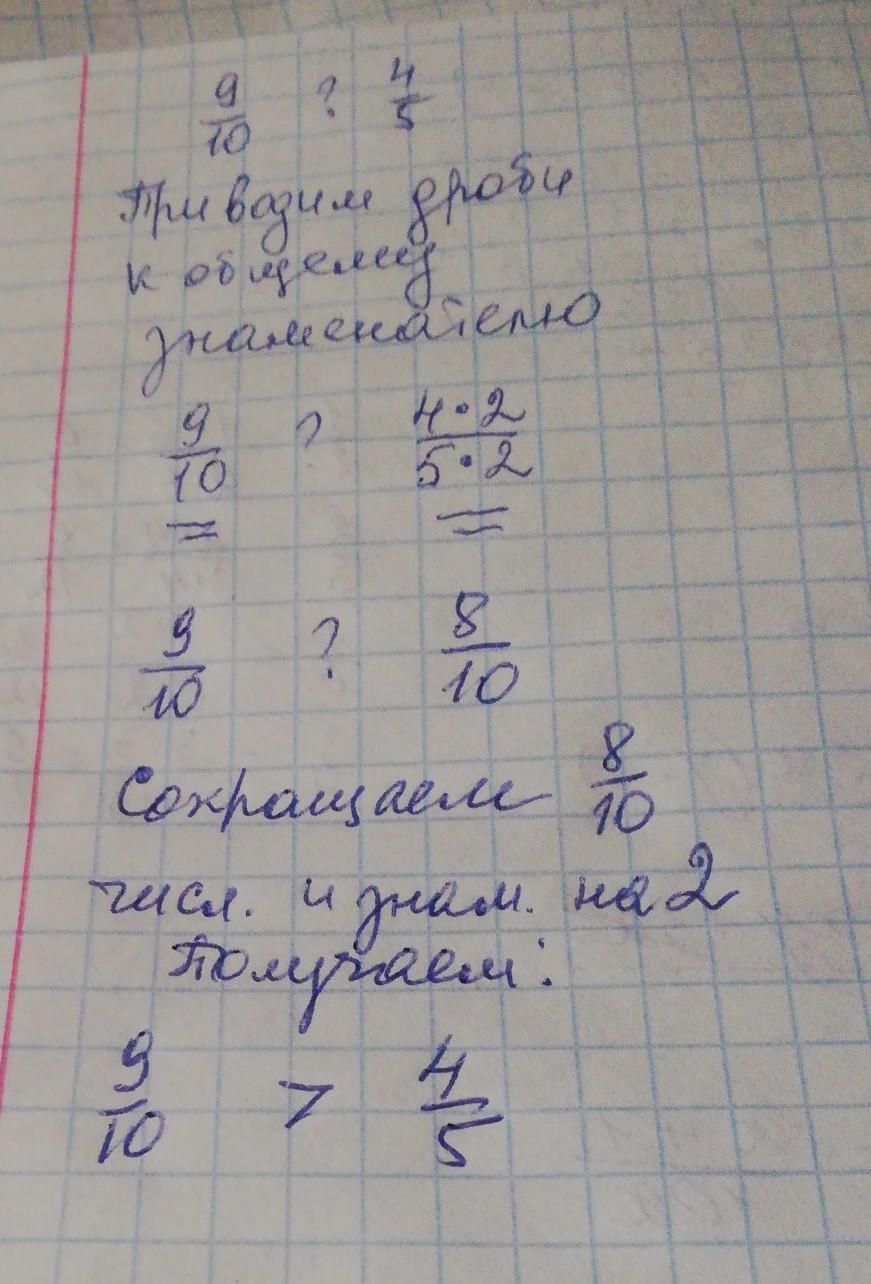 9/10 ? 4/5
Приводим дроби
к общему
знаменателю
9/10 ? 4·2/5·2
= =
9/10 ? 8/10
Сокращаем 8/10
числ. и знам. на 2
Получаем:
9/10 > 4/5